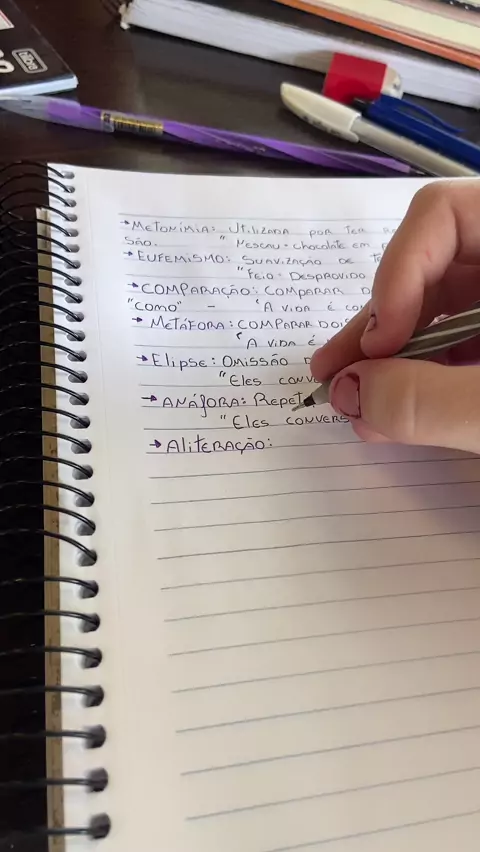 tilibra
→ METONÍMIA: UTILIZADA POR TER
SÃO. " NESCAU - CHOCOLATE EM
→ EUFEMISMO: SUAVIZAÇÃO DE
"FEIO - DESPROVIDO
→ COMPARAÇÃO: COMPARAR
"COMO" - "A VIDA É
→ METÁFORA: COMPARAR
"A VIDA É
→ ELIPSE: OMISSÃO
"ELES
→ ANÁFORA:
"ELES
→ ALITERAÇÃO: